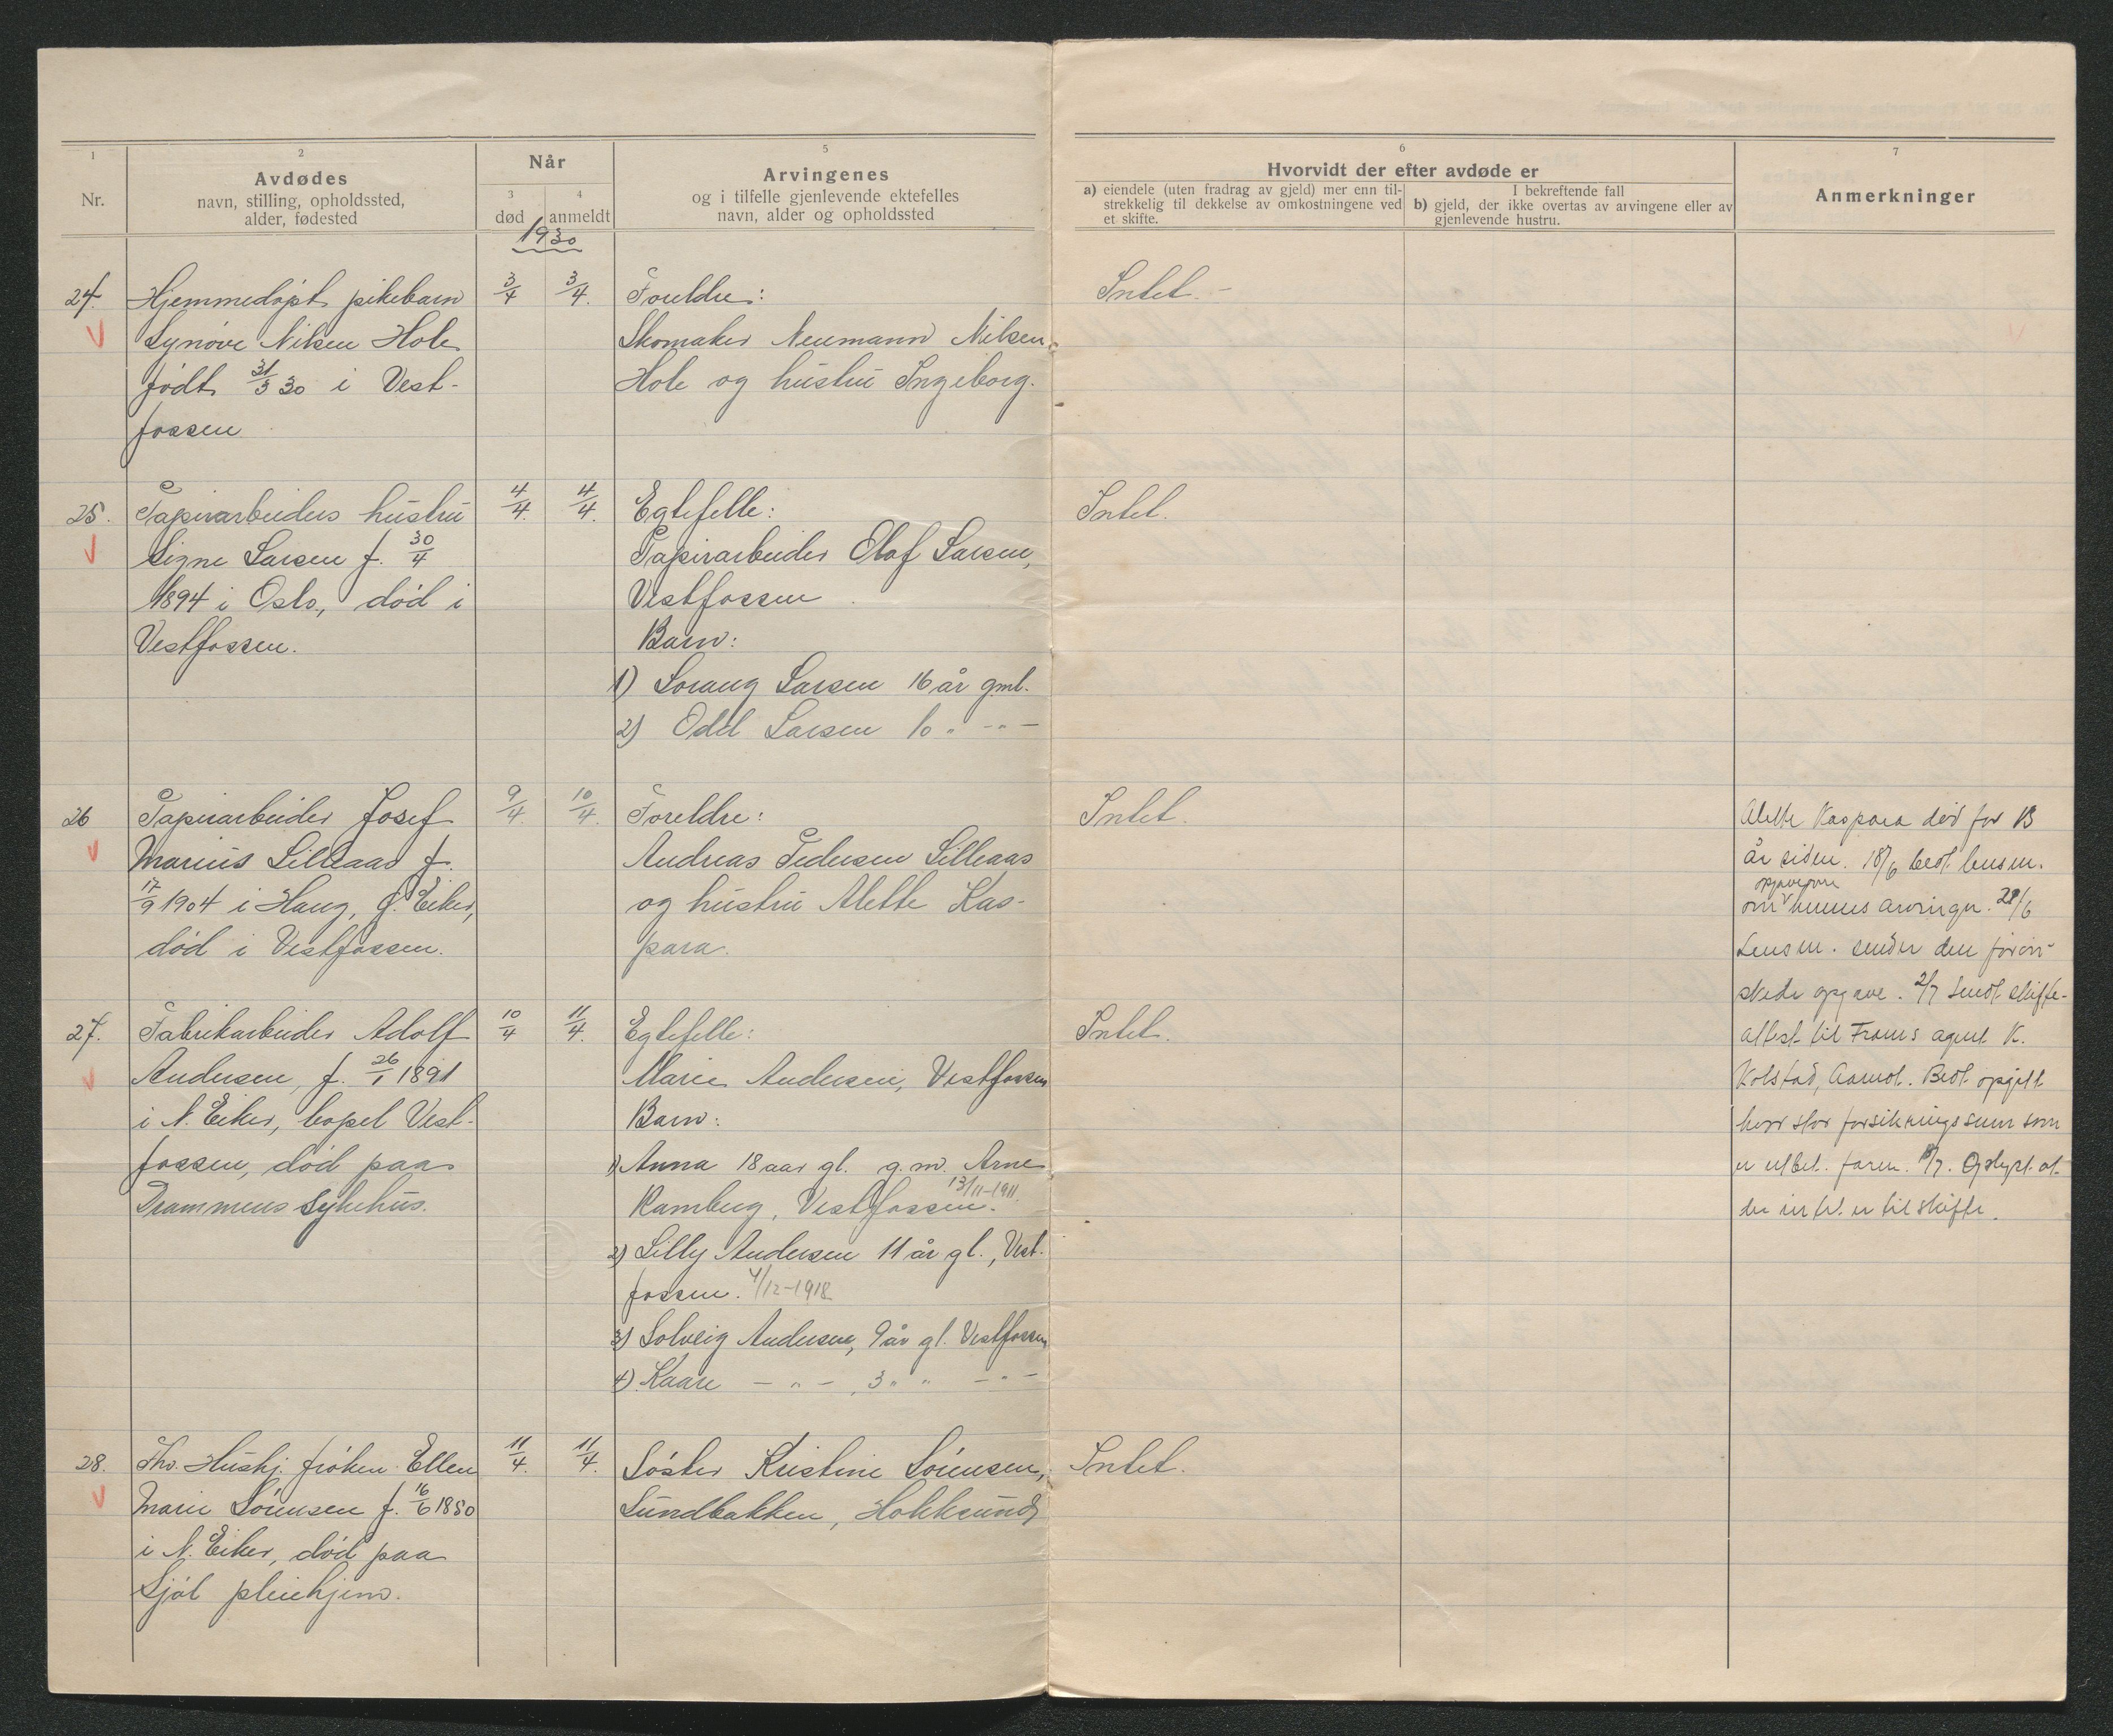 1
2
Når
5
6
7
Nr.
Avdødes
navn, stilling, opholdssted,
alder, fødested
3
død
4
anmeldt
Arvingenes
og i tilfelle gjenlevende ektefelles
navn, alder og opholdssted
Hvorvidt der efter avdøde er
a) eiendele (uten fradrag av gjeld) mer enn til-
strekkelig til dekkelse av omkostningene ved
et skifte.
I bekreftende fall
b) gjeld, der ikke overtas av arvingene eller av
gjenlevende hustru.
Anmerkninger
1930
24.
Hjemmedøpt pikebarn
Synøve Nilsen Hole
født 31/3 30 i Vest-
fossen
3/4
3/4.
Foreldre:
Skomaker Neumann Nilsen
Hole og hustru Ingeborg.
Intet.-
25.
Papirarbeiders hustru
Signe Larsen f. 30/4
1894 i Oslo, død i
Vestfossen.
4/4.
4/4.
Egtefelle:
Papirarbeider Olaf Larsen,
Vestfossen
Barn:
1) Solaug Larsen 16 år gml.
2) Odd Larsen 10 " -"-
Intet.
26
Papirarbeider Josef
Marius Lilleaas f.
17/9 1904 i Haug, Ø. Eiker,
død i Vestfossen.
9/4.
10/4.
Foreldre:
Andreas Pedersen Lilleaas
og hustru Alette Kas-
para.
Intet.
Alette Kaspara død for 13
år siden. 18/6 bedt lensm.
opgave over
om hennes arvinger. 28/6
Lensm. sender den forøn-
skede opgave. 2/7 sendt skifte-
attest til Frams agent K.
Kolstad, Aamot. Bedt opgitt
hvor stor forsikringssum som
er utbet. faren. 8/7. Oplyst at
der intet er til skifte.
27.
Fabrikarbeider Adolf
Andersen, f. 26/1 1891
i N. Eiker, bopel Vest-
fossen, død paa
Drammens sykehus.
10/4
11/4.
Egtefelle:
Marie Andersen, Vestfossen
Barn:
1) Anna 18 aar gl. g.m. Arne
Ramberg, Vestfossen. 13/11-1911.
2) Lilly Andersen 11 år gl., Vest-
fossen. 4/12-1918
3) Solveig Andersen, 9 år gl. Vestfossen
4) Kaare -"-, 3 " " -"-
Intet.
28.
Fhv. Hushj. frøken Ellen
Marie Sørensen f. 16/6 1850
i N. Eiker, død paa
Sjøl pleiehjem.
11/4.
11/4.
Søster Kristine Sørensen,
Sundbakken, Hokksund
Intet.